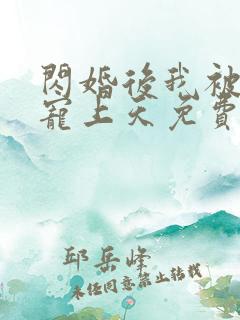 閃婚後我被
寵上天免費
邱岳峰
未任同意禁止轉載